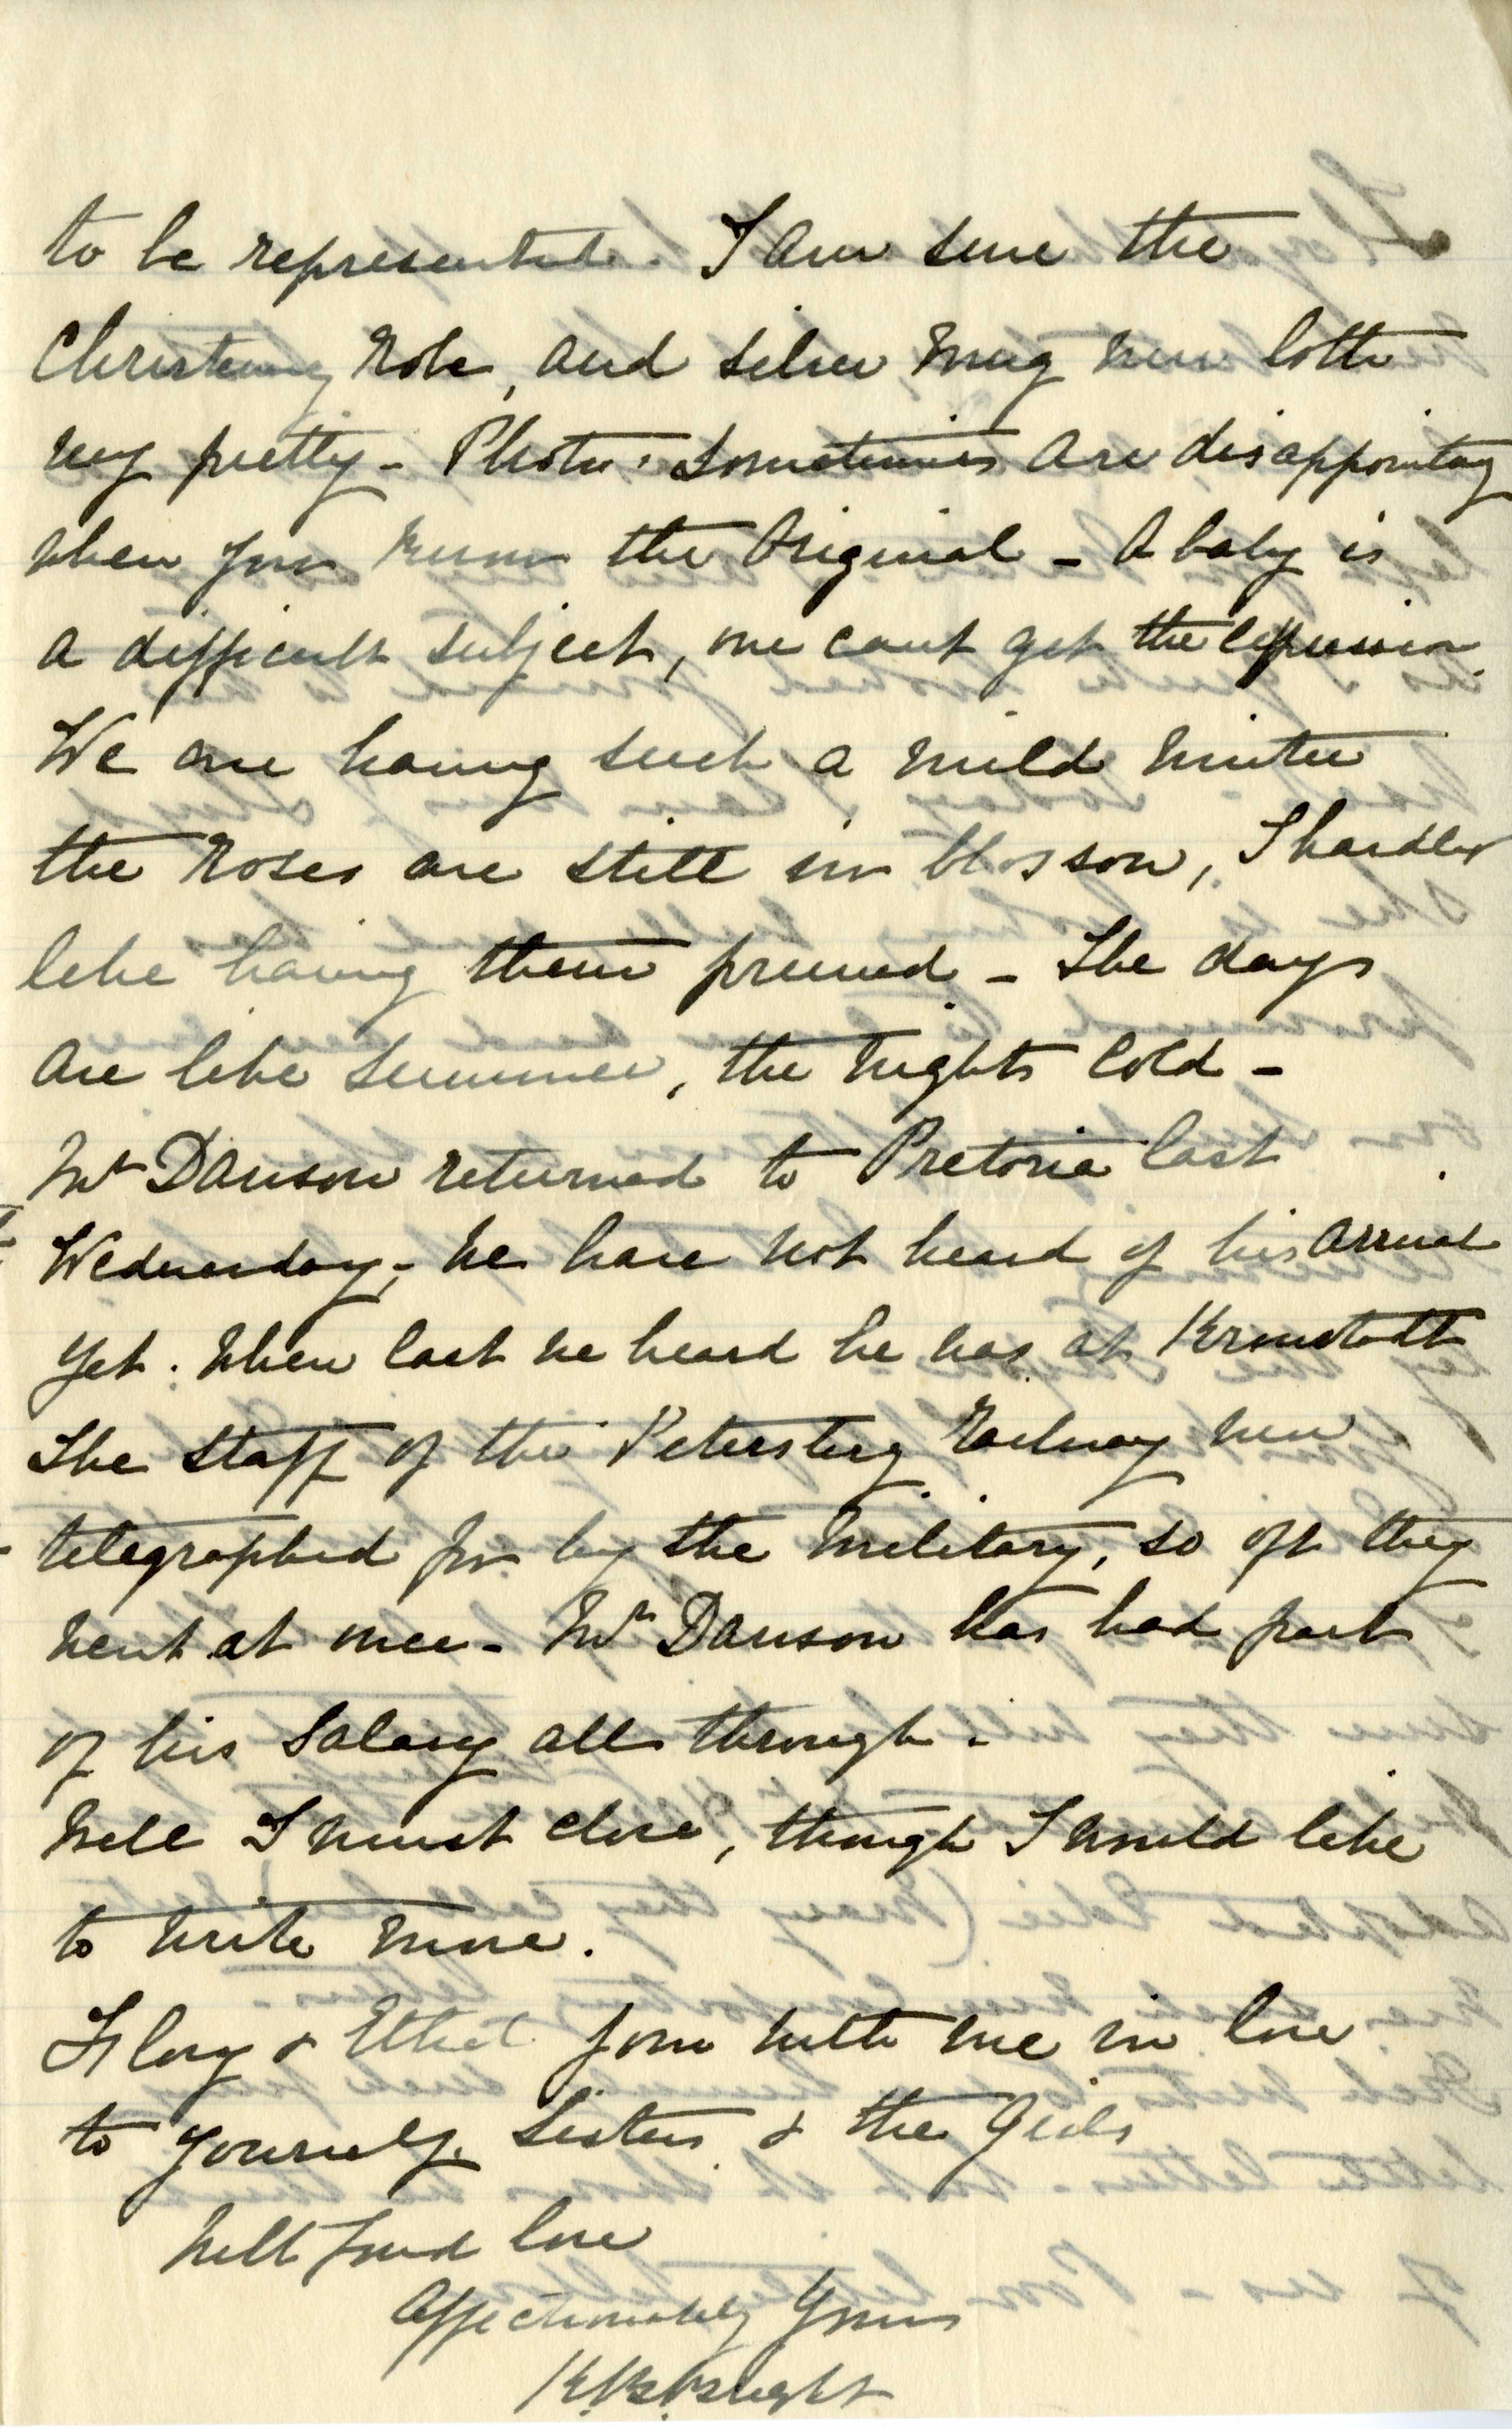 to be represented. I am sure the
Christening Robe, and silver mug were both
very pretty - Photos. sometimes are disappointing
when you know the Original - A baby is
a difficult subject, one cant get the expression.
We are having such a mild winter
the Roses are still in blossom, I hardly
like having them pruned - The days
are like summer, the nights cold -
Mr Dawson returned to Pretoria last
Wednesday, - we have not heard of his arrival
yet. When last we heard he was at Kronstadt
The Staff of the Petersburg Railway were
telegraphed for by the Military, so off they
went at once - Mr Dawson has had part
of his Salary all through.
Well I must close, though I would like
to write more.
Flory & Ethel join with me in love
to yourself, Sisters & the Girls
With fond love
Affectionately Yours